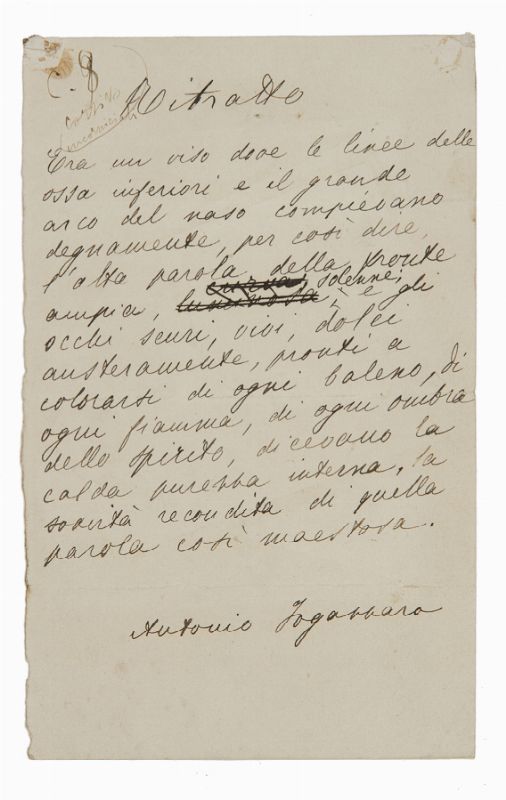 8
Ritratto
corsivo
Era un viso dove le linee delle
ossa inferiori e il grande
arco del naso compievano
degnamente, per così dire,
l'alta parola della fronte
curva, solenne;
ampia, luminosa; e gli
occhi scuri, vivi, dolci
austeramente, pronti a
colorarsi di ogni baleno, di
ogni fiamma, di ogni ombra
dello spirito, dicevano la
calda purezza interna, la
soavità recondita di quella
parola così maestosa.
Antonio Fogazzaro